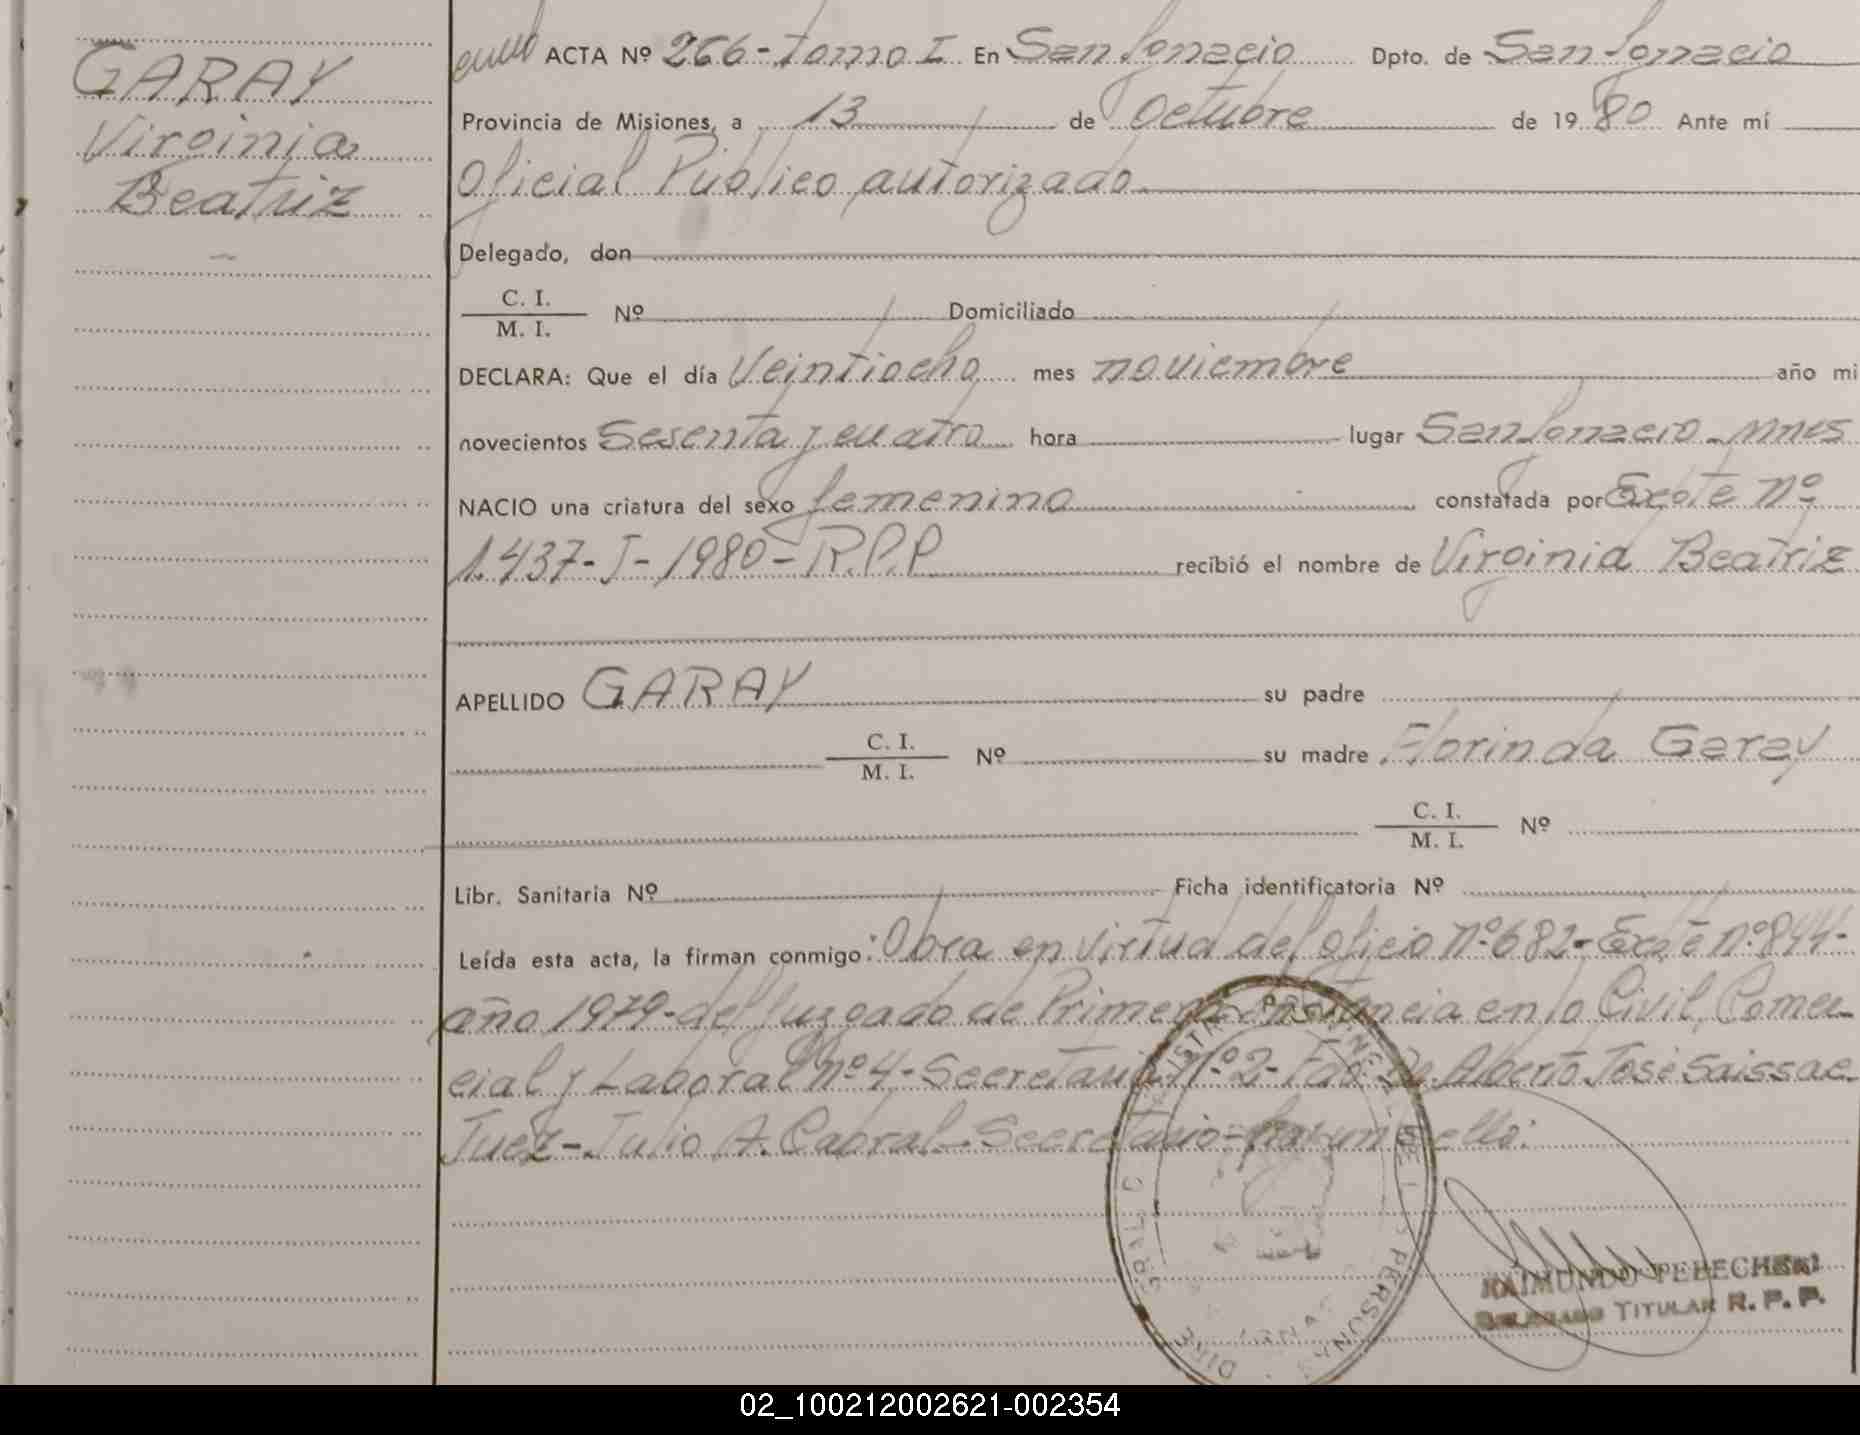 GARAY
Virginia
Beatriz
ACTA Nº 266 - tomo I En San Ignacio Dpto. de San Ignacio
Provincia de Misiones, a 13 de Octubre de 1980 Ante mí
Oficial Público autorizado
Delegado, don
C. I.
M. I. Nº Domiciliado
DECLARA: Que el día Veintiocho mes noviembre año mi
novecientos Sesenta y cuatro hora lugar San Ignacio - Mnes
NACIO una criatura del sexo femenino constatada por Expte Nº
1.437-J-1980-R.P.P recibió el nombre de Virginia Beatriz
APELLIDO GARAY su padre
C. I.
M. I. Nº su madre Florinda Garay
C. I.
M. I. Nº
Libr. Sanitaria Nº Ficha identificatoria Nº
Leída esta acta, la firman conmigo: Obra en virtud del oficio Nº 682 - Expte nº 844-
año 1979 - del Juzgado de Primera Instancia en lo Civil, Comer
cial y Laboral Nº 4 - Secretaria Nº 2 - Fdo: Dr. Alberto José Saissac
Juez - Julio A. Cabral - Secretario - Hay un sello:
RAIMUNDO
DELEGADO TITULAR R. P. P.
02_100212002621-002354